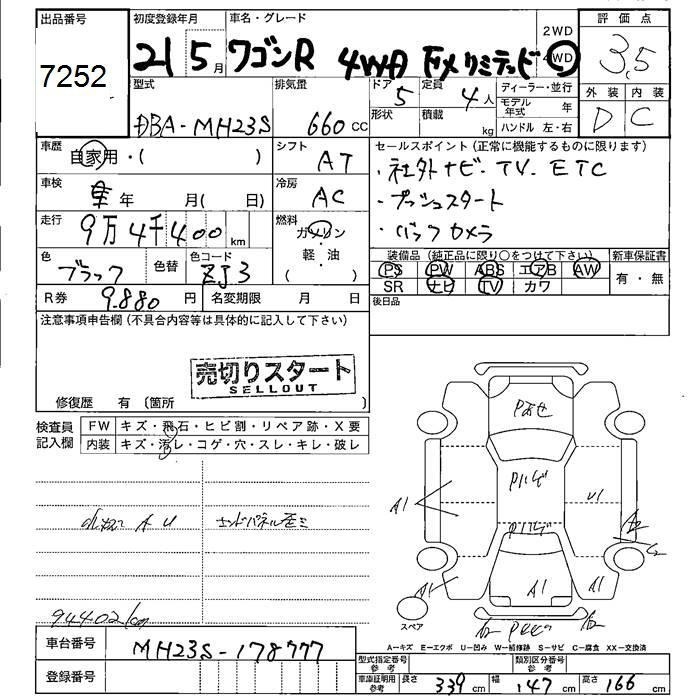 出品番号 初度登録年月 車名・グレード 2WD 評価点
7252 21 5月 ワゴンR 4WD FXリミテッド 4WD 3.5
型式 排気量 ドア 5 定員 4人 ディーラー・並行 外装 内装
DBA-MH23S 660cc 形状 積載 kg モデル年式 年 D C
ハンドル 左・右
車歴 自家用・( ) シフト AT セールスポイント(正常に機能するものに限ります)
・社外ナビ・TV・ETC
車検 年 月( 日) 冷房 AC ・プッシュスタート
走行 9万4千400km 燃料 ガソリン ・バックカメラ
軽・油
( )
色 ブラック 色替 色コード ZJ3 装備品(純正品に限り○をつけて下さい) 新車保証書
PS PW ABS エアB AW 有・無
R券 9.880円 名変期限 月 日 SR ナビ TV カワ
注意事項申告欄(不具合内容等は具体的に記入して下さい) 後日品
売切りスタート
SELLOUT
修復歴 有 〔箇所 〕
検査員記入欄 FW キズ・飛石・ヒビ割・リペア跡・X要
内装 キズ・汚レ・コゲ・穴・スレ・キレ・破レ
A U エンドパネル歪ミ
94402km
A1 U1 A2
A1 A1 A1
スペア
A-キズ E-エクボ U-凹み W-補修跡 S-サビ C-腐食 XX-交換済
車台番号 MH23S-178777
型式指定番号 参考 類別区分番号 参考
登録番号 車庫証明用 参考 長さ 339cm 幅 147cm 高さ 166cm